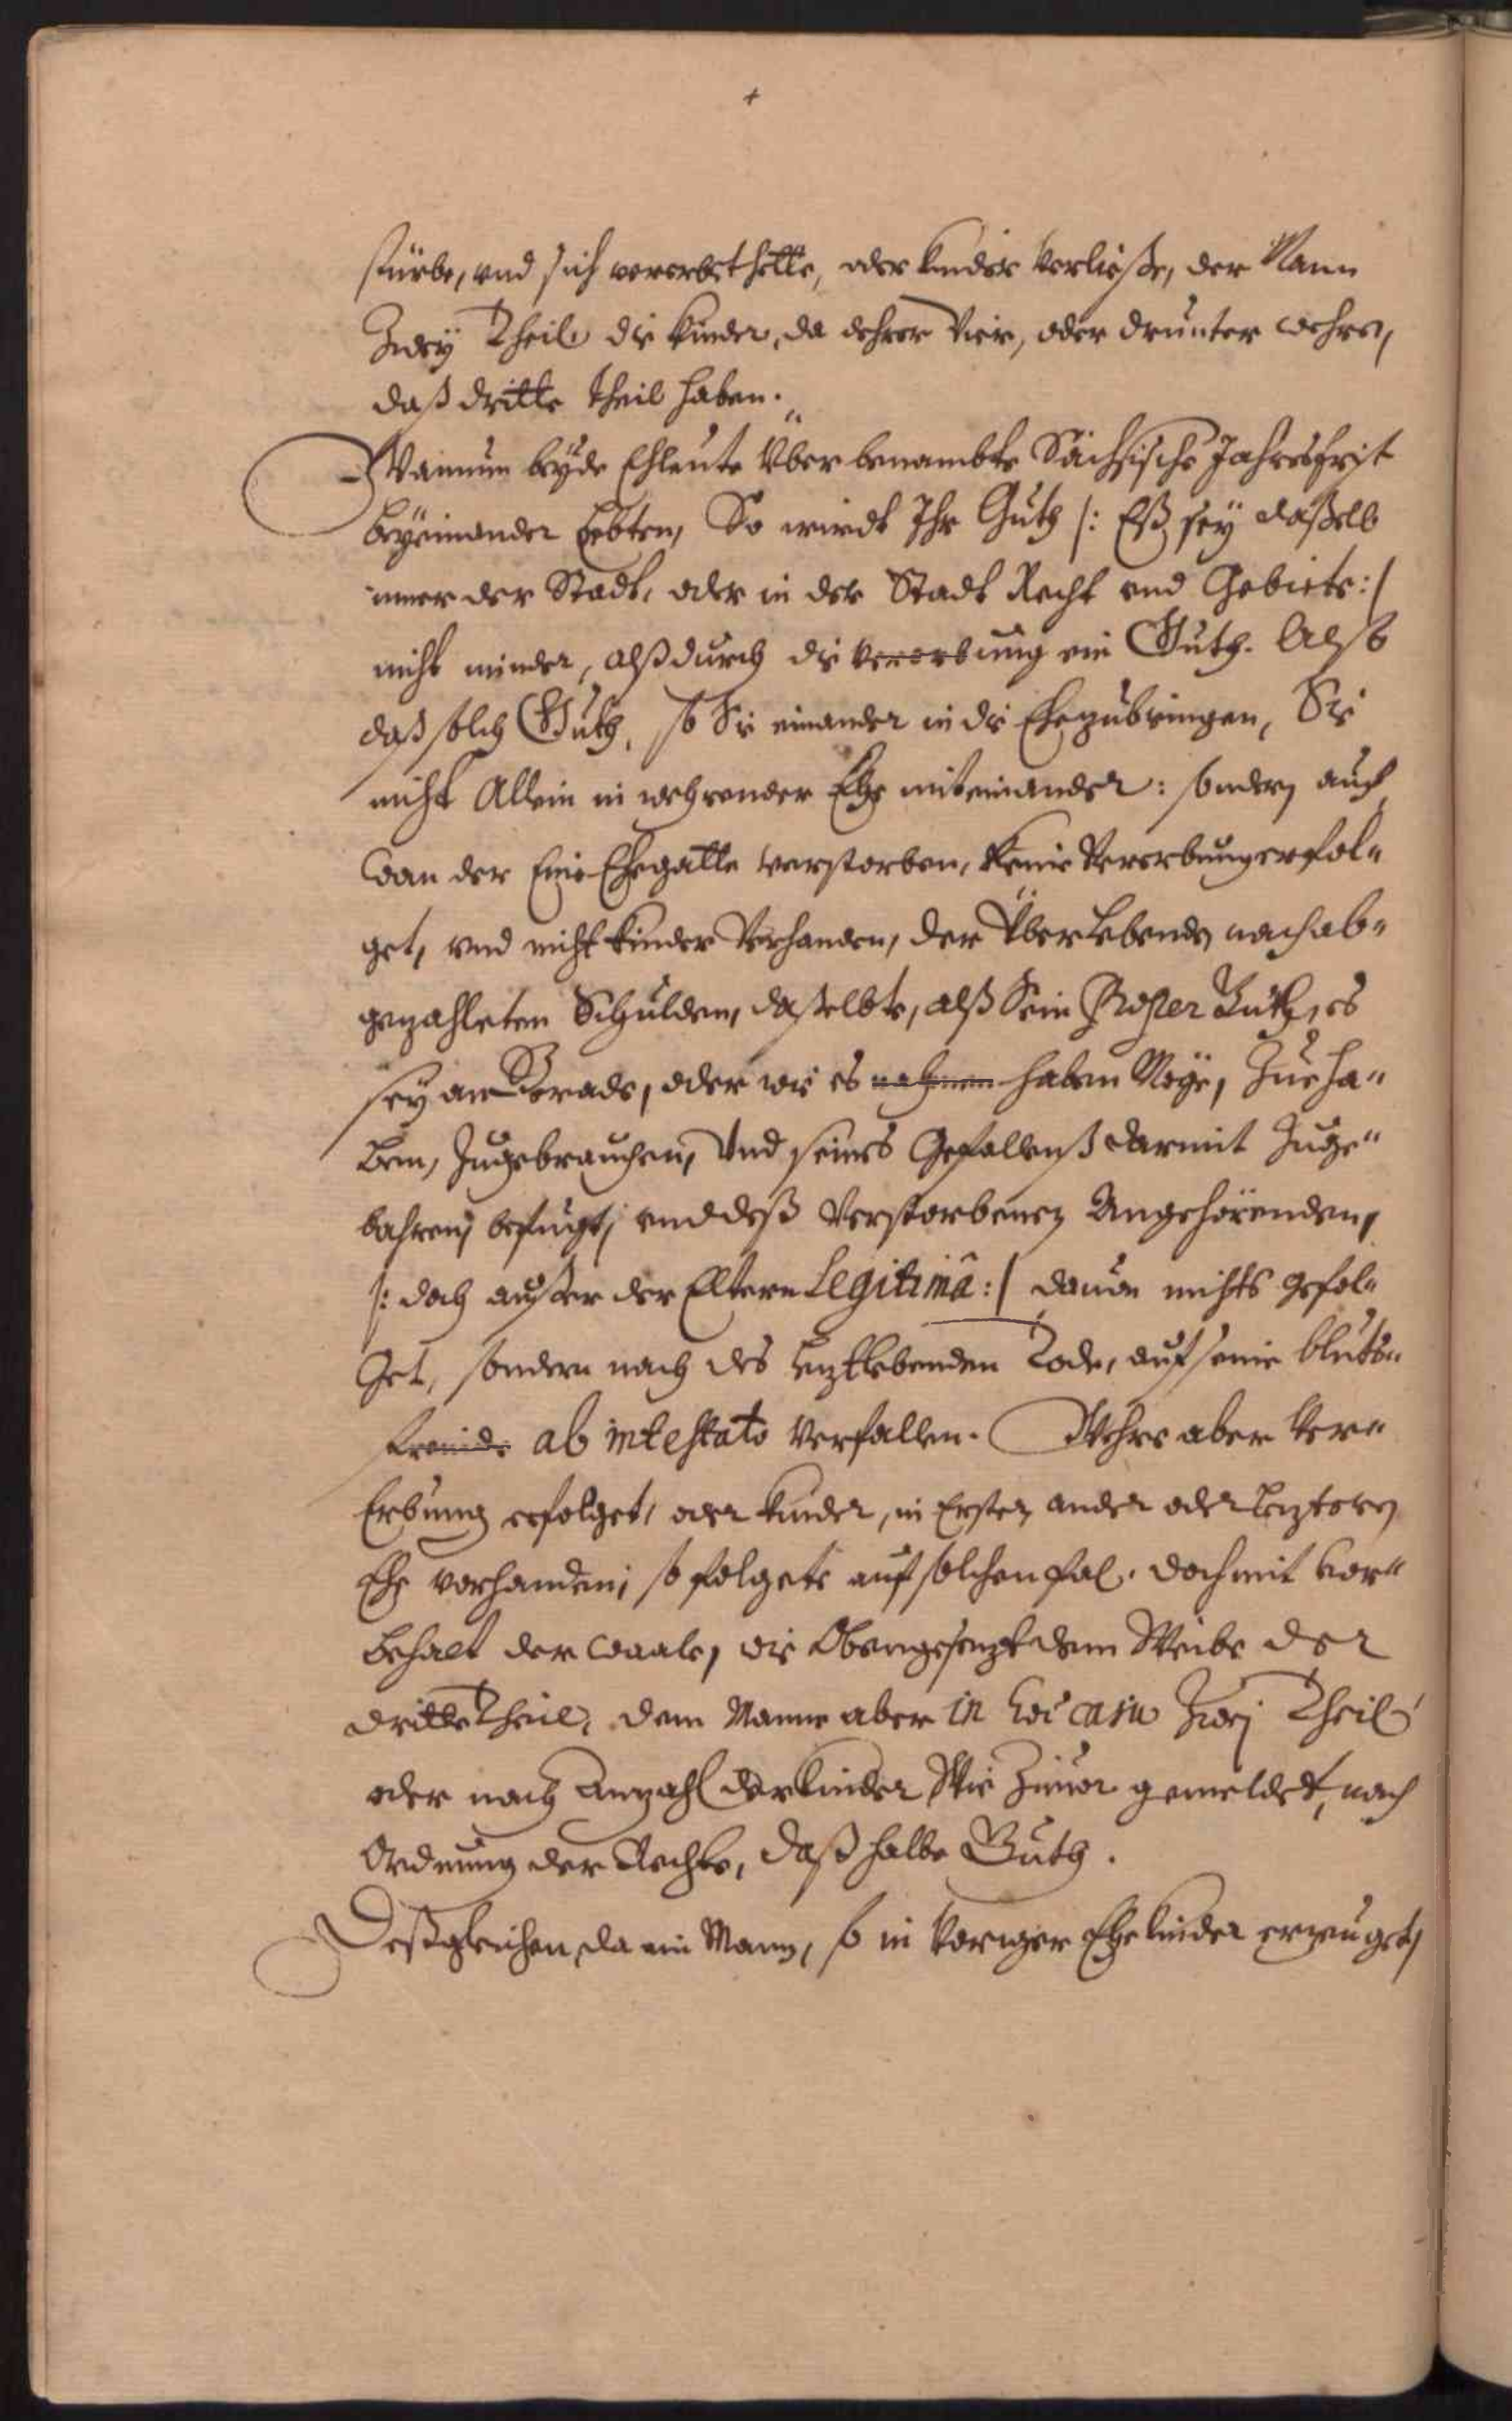 stürbe, und sich vererbet hette, oder kinder verließe, der Mann
Zwey Theil die kinder, da dehrer Vier, oder drunter wehren,
daß dritte theil haben.
Wannun beyde Ehleute Über benambte Sächsische Jahresfrist
beyeinander Lebten, So wirdt Ihr Guth /: Eß sey daßelb
inner der Stadt, oder in der Stadt Recht und Gebiete :/
nicht minder, alß durch die vererbung ein Guth. Also
daß solch Guth, so Sie einander in die Ehe zubringen, Sie
nicht Allein in wehrender Ehe miteinander: sondern auch
wan der Eine Ehegatte verstorben, keine Vererbung erfol-
get, und nicht kinder Verhanden, der Überlebende nach ab-
gezahleten Schulden, daßelbte, alß Sein Proper Guth, es
sey an Gerade, oder wie es nahmen haben Möge, Zue ha-
ben, Zugebrauchen, Und seines Gefallenß darmit Zuge-
bahren, befugt, und deß Verstorbenen Angehörenden,
/: doch außer der Eltern Legitimâ :/ dauon nichts gefol-
get, sondern nach des Leztlebenden Tode, auf seine bluts-
freunde ab intestato Verfallen. Wehre aber Ver-
Erbung erfolget, oder kinder, in Erster, ander oder Lezteren
Ehe vorhanden, so folgete auf solchen fal. doch mit vor-
behalt der waale, wie Obengesezt dem Weibe der
dritte Theil, dem Manne aber in hoc casu Zwey Theil
oder nach Anzahl der kinder Wie Zuuor gemeldet, nach
Ordnung der Rechte, daß halbe Guth.
Deßgleichen, da ein Mann, so in voriger Ehe kinder erzeuget,